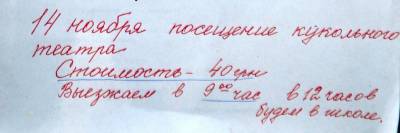 14 ноября посещение кукольного
театра
Стоимость - 40 грн
Выезжаем в 9⁰⁰ час в 12 часов
будем в школе.